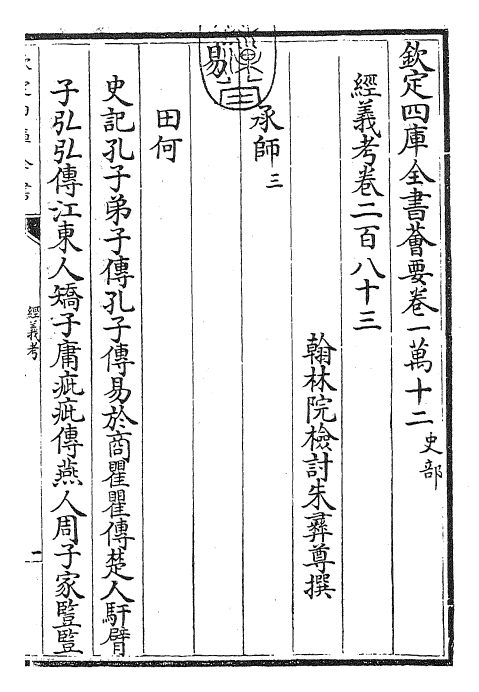 欽定四庫全書薈要卷一萬十二史部
經義考卷二百八十三
翰林院檢討朱彝尊撰
承師三
易
田何
史記孔子弟子傳孔子傳易於商瞿瞿傳楚人馯臂
子弘弘傳江東人矯子庸疵疵傳燕人周子家竪竪
經義考